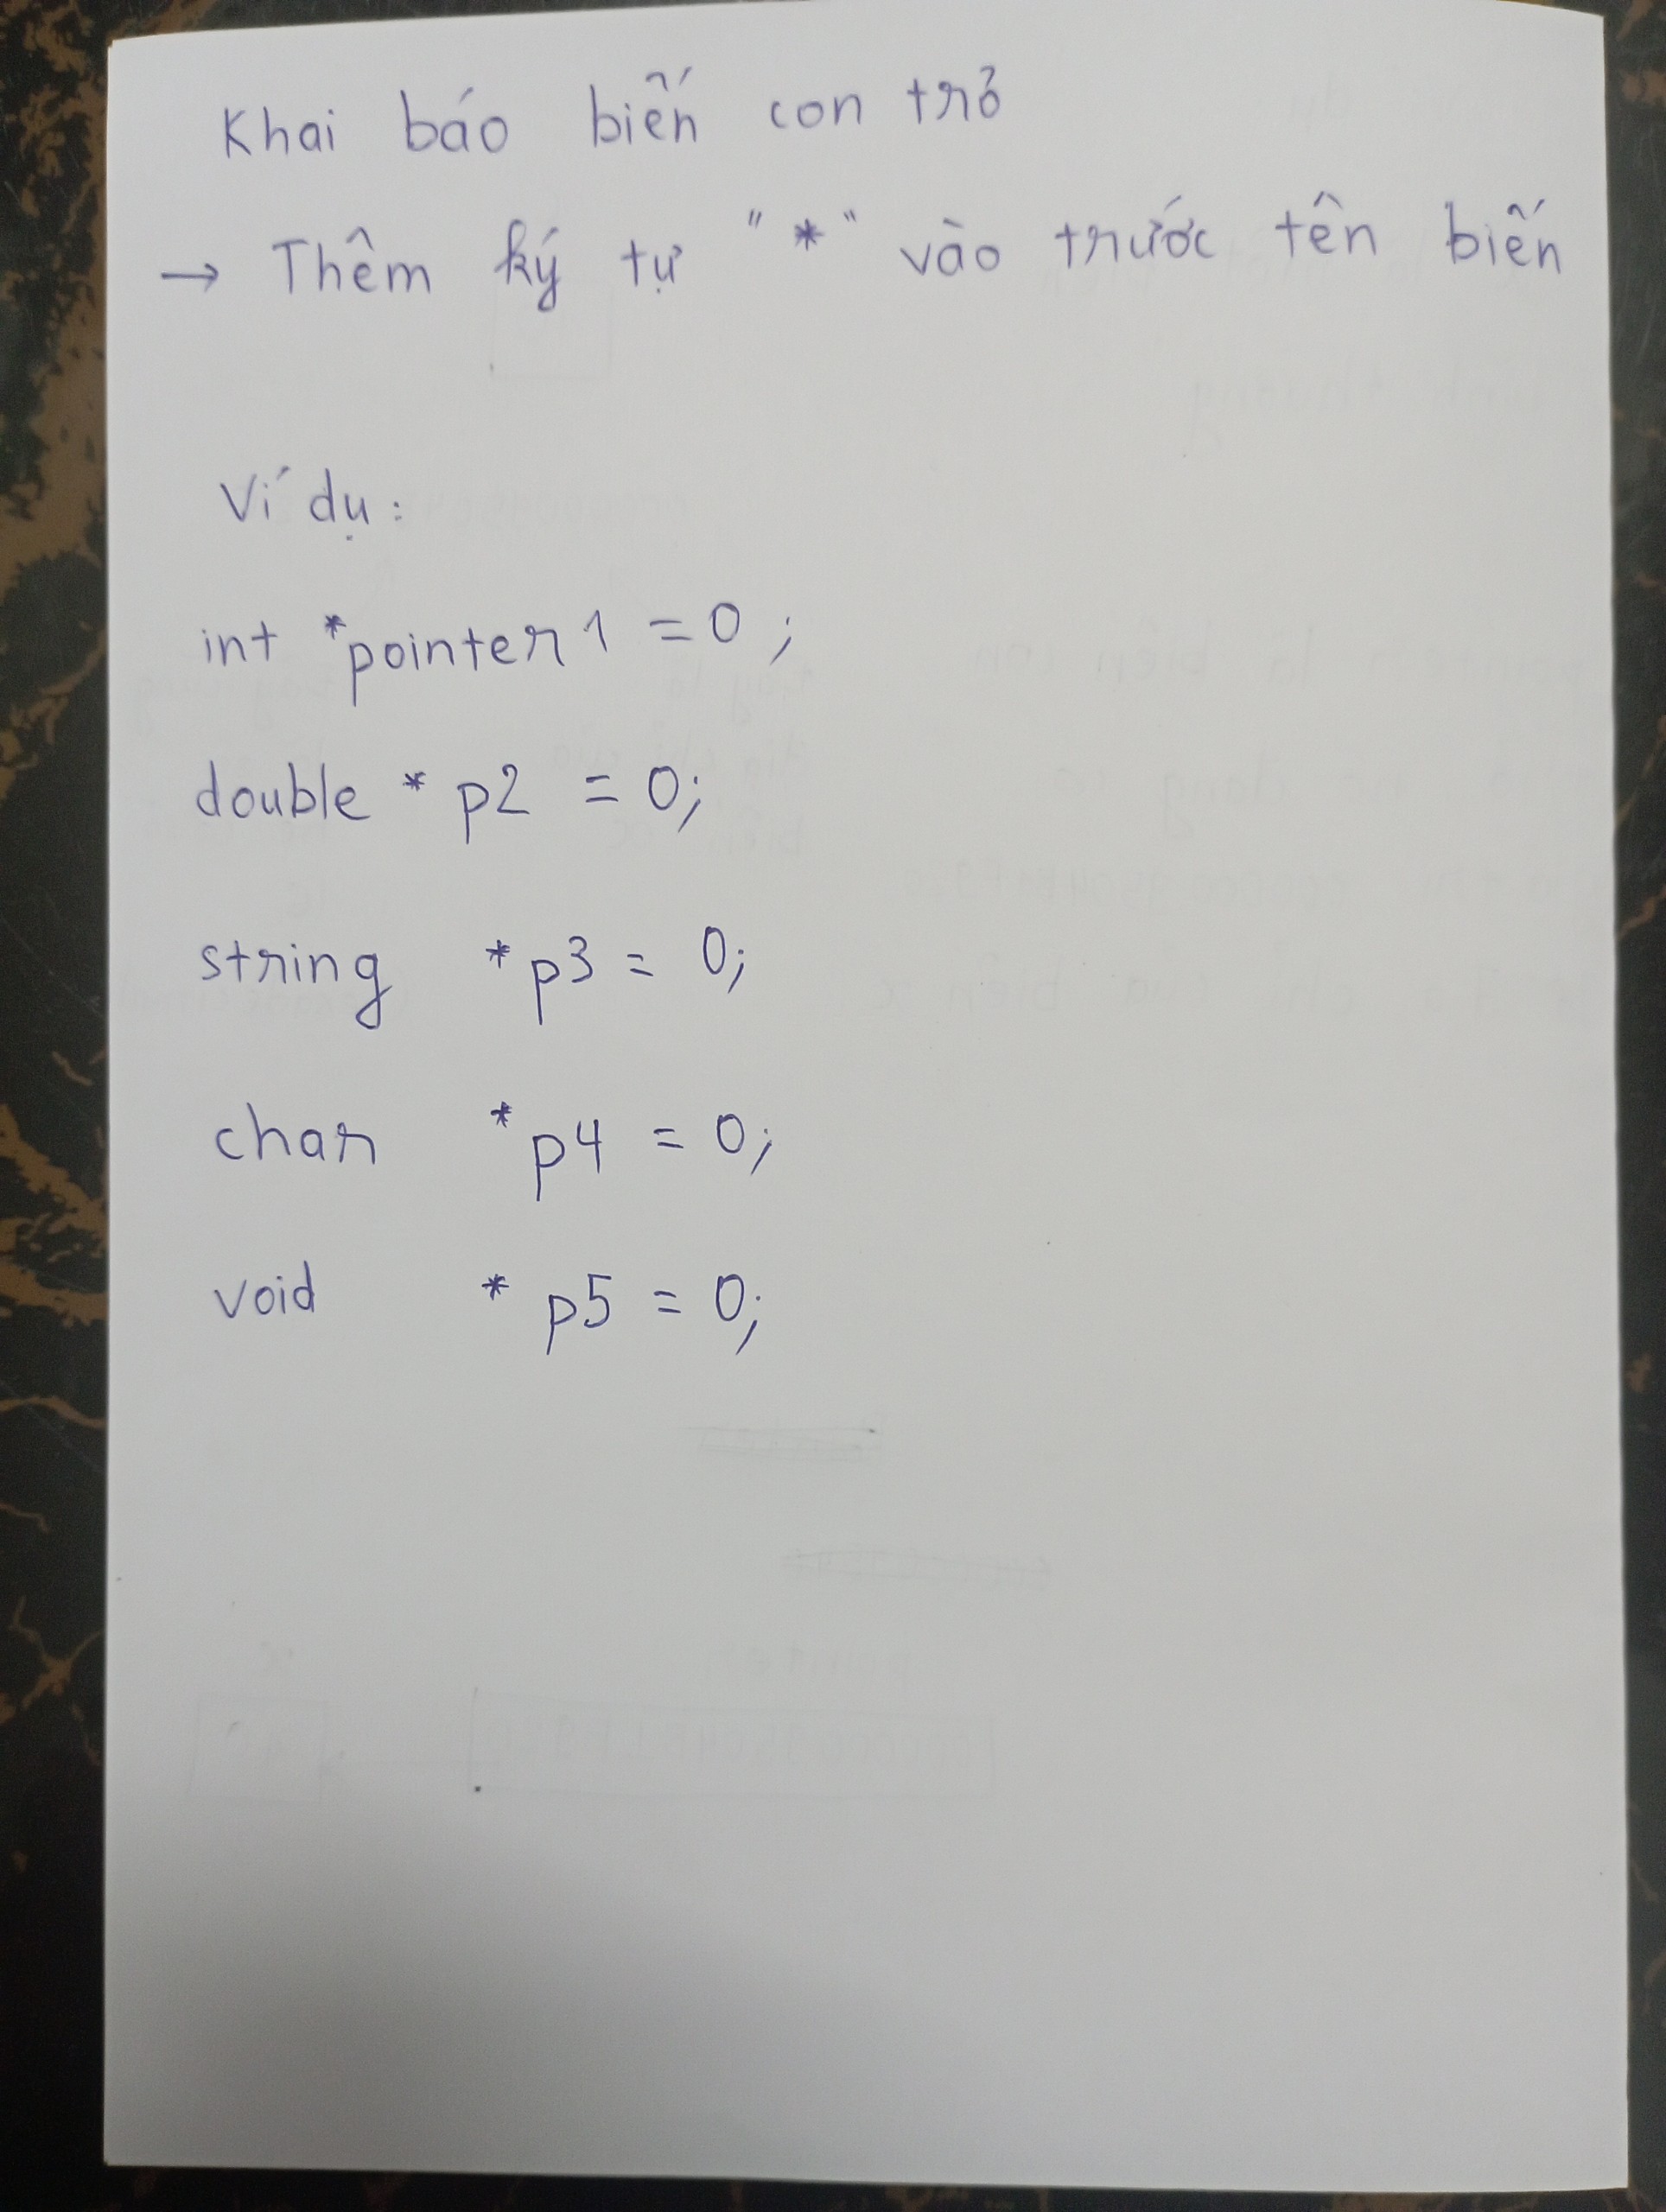 Khai báo biến con trỏ
→ Thêm ký tự "*" vào trước tên biến
Ví dụ:
int *pointer1 = 0;
double * p2 = 0;
string *p3 = 0;
char *p4 = 0;
void * p5 = 0;